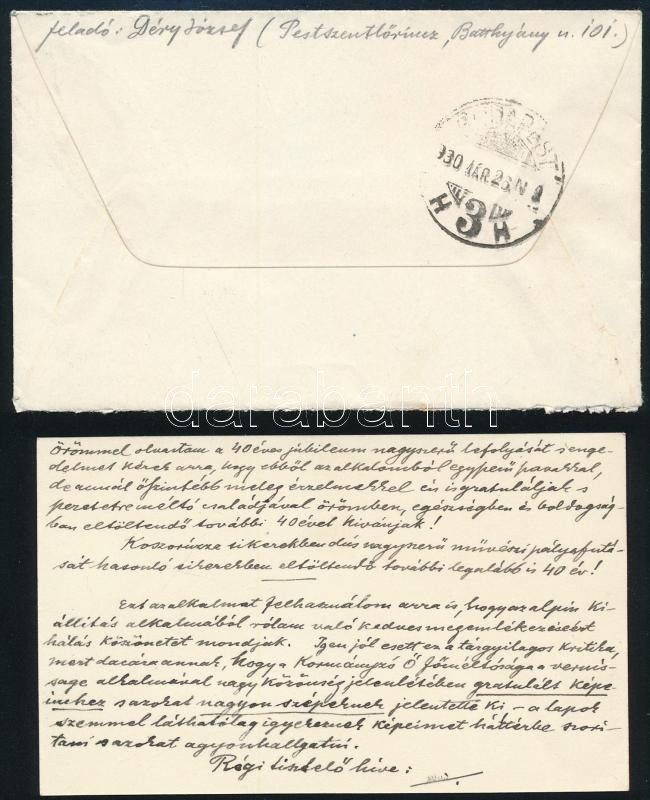 feladó: Déry József (Pestszentlőrinc, Batthyány u. 101.)
BUDAPEST
930 MÁR. 26. N
H 3 H
darabanth
Örömmel olvastam a 40 éves jubileum nagyszerű lefolyását s enge-
delmet kérek arra, hogy ebből az alkalomból egyszerű szavakkal,
de annál őszintébb meleg érzelmekkel én is gratuláljak s
szeretetreméltó családjával örömben, egészségben és boldogság-
ban eltöltendő további 40 évet kivánjak!
Koszorúzza sikerekben dús nagyszerű művészi pályafutá-
sát hasonló sikerekben eltöltendő további legalább is 40 év!
Ezt az alkalmat felhasználom arra is, hogy az alpin ki-
állítás alkalmából rólam való kedves megemlékezéseért
hálás köszönetet mondjak. Igen jól esett ez a tárgyilagos kritika,
mert dacára annak, hogy a Kormányzó Ő főméltósága a vernis-
sage alkalmával nagy közönség jelenlétében gratulált képe-
imhez s azokat nagyon szépeknek jelentette ki – a lapok
szemmel láthatólag igyekeznek képeimet háttérbe szorí-
tani s azokat agyonhallgatni.
Régi tisztelő híve: